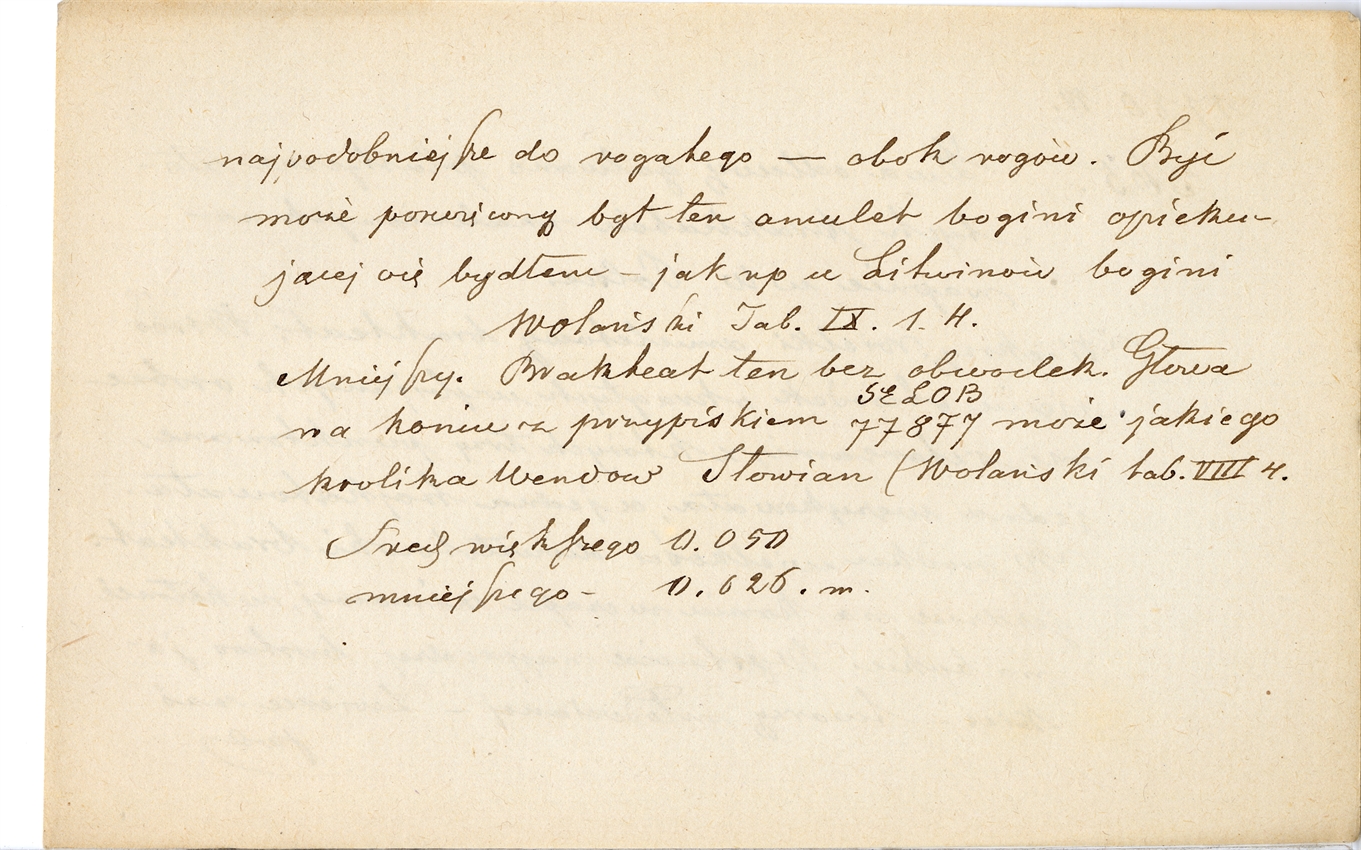 najpodobniejsze do rogatego — obok rogów. Być
może poswięcony był ten amulet bogini opieku-
jącej się bydłem – jak np u Litwinów bogini
Wolański Tab. IX. 1. 4.
Mniejszy. Brakteat ten bez obwodek. Głowa
SELOB
na koniu z przypiskiem 77877 może jakiego
krolika Wendow Słowian (Wolański tab. VIIII 4.
Sred. większego 0.050
mniejszego – 0.026. m.